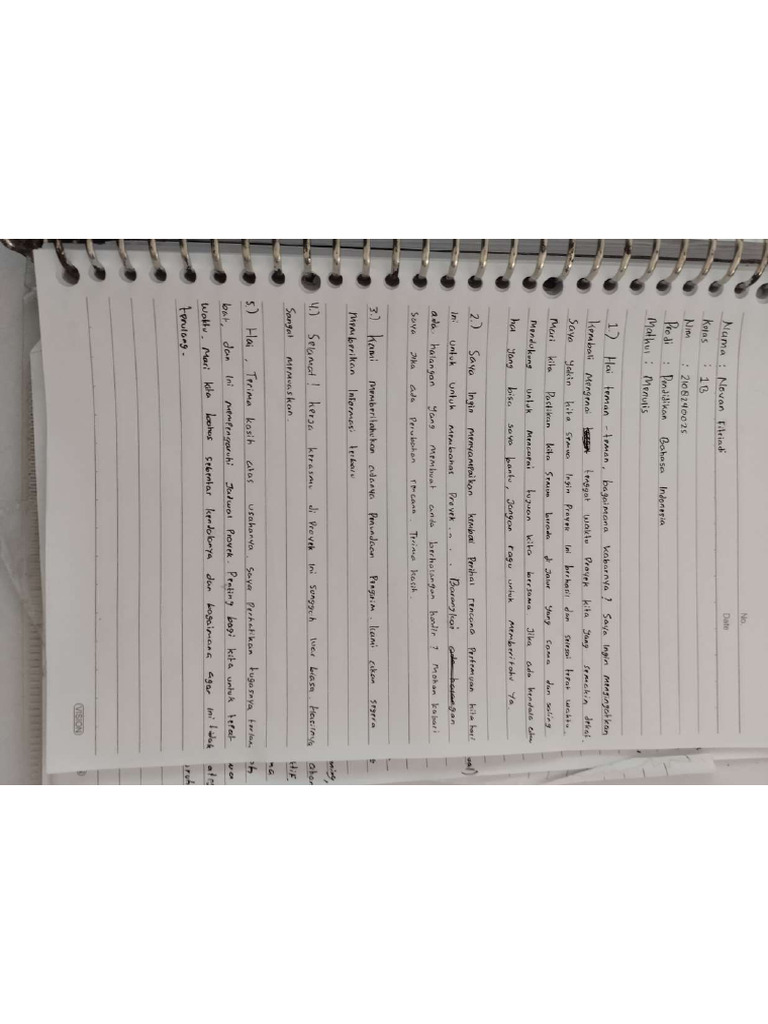 No.
Date
Nama : Novan Fitriadi
Kelas : 1B
Nim : 2108240025
Prodi : Pendidikan Bahasa Indonesia
Matkul : Menulis
1.) Hai teman-teman, bagaimana kabarnya? Saya ingin mengingatkan
kembali mengenai tenggat waktu Proyek kita yang semakin dekat.
Saya yakin kita semua ingin Proyek ini berhasil dan selesai tepat waktu.
Mari kita Pastikan kita semua berada di Jalur yang sama dan saling
mendukung untuk mencapai tujuan kita bersama Jika ada kendala atau
hal yang bisa saya bantu, Jangan ragu untuk memberitahu Ya.
2.) Saya Ingin menyampaikan kembali Perihal rencana Pertemuan kita hari
ini untuk untuk membahas Proyek . . . Barangkali
ada halangan yang membuat anda berhalangan hadir? Mohon kabari
saya Jika ada Perubahan rencana. Terima kasih.
3.) Kami memberitahukan adanya Penundaan Pengirim. kami akan segera
memberikan Informasi terbaru
4.) Selamat! kerja kerasmu di Proyek Ini sungguh luar biasa. Hasilnya
Sangat memuaskan.
5.) Hai, Terima kasih atas usahanya. Saya Perhatikan tugasnya terlam
bat, dan ini mempengaruhi Jadwal Proyek. Penting bagi kita untuk tepat
waktu. Mari kita bahas sebentar kendalanya dan bagaimana agar ini tidak
terulang.
VISION